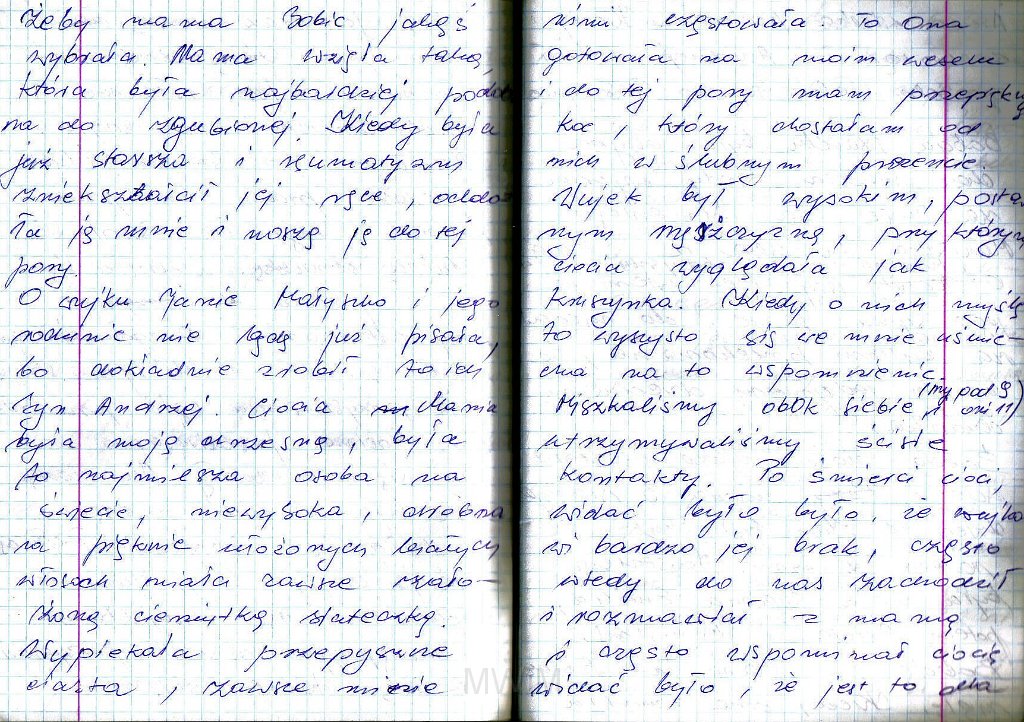 żeby mama sobie jakąś
wybrała. Mama wzięła taką,
która była najbardziej podob
na do zgubionej. Kiedy była
już starsza i reumatyzm
zniekształcił jej ręce, odda
ła ją mnie i noszę ją do tej
pory.
O wujku Janie Małyszko i jego
rodzinie nie będę już pisała,
bo dokładnie zrobił to ich
syn Andrzej. Ciocia Mania
była moją chrzesną, była
to najmilsza osoba na
świecie, niewysoka, drobna
na pięknie ułożonych białych
włosach miała zawsze zało-
żoną cieniutką siateczkę.
Wypiekała przepyszne
ciasta, zawsze mnie
nimi częstowała. To Ona
gotowała na moim weselu
i do tej pory mam przepiękny
koc, który dostałam od
nich w ślubnym prezencie.
Wujek był wysokim, postaw
nym mężczyzną, przy którym
ciocia wyglądała jak
kruszynka. Kiedy o nich myślę
to wszystko się we mnie uśmie-
cha na to wspomnienie.
Mieszkaliśmy obok siebie, (my pod 9, oni 11)
utrzymywaliśmy ścisłe
kontakty. Po śmierci cioci,
widać było było, że wujko
wi bardzo jej brak, często
wtedy do nas zachodził
i rozmawiał z mamą
i często wspominał ciocię
widać było, że jest to dla
MWM